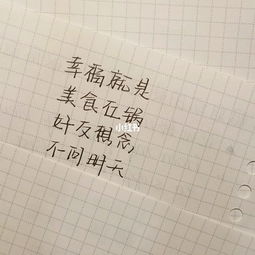 幸福就是
美食在锅
好友想念,
不问明天
小红书